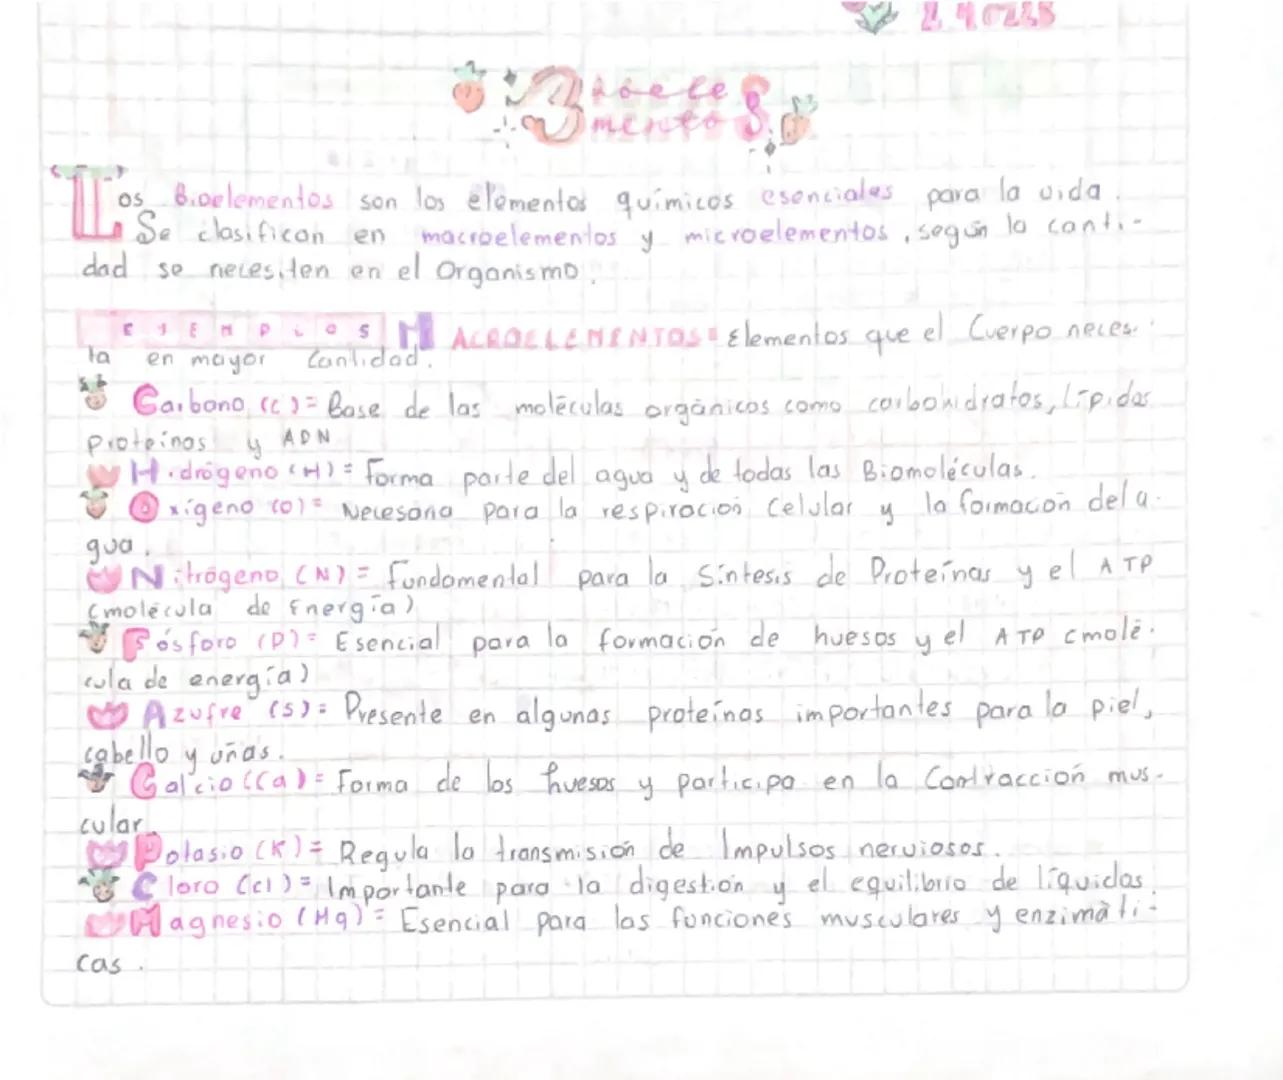 Bioele
mentoS
Los Bioelementos son los elementos químicos esenciales para la vida.
Se clasifican en macroelementos y microelementos, según la canti-
dad se necesiten en el Organismo.
EJEMPLOS MACROELEMENTOS= Elementos que el Cuerpo necesi
ta en mayor Cantidad.
Carbono (C)= Base de las moléculas orgánicos como carbohidratos, lípidos
Proteínas y ADN
Hidrógeno (H)= Forma parte del agua y de todas las Biomoléculas.
Oxígeno (O)= Necesaria para la respiración Celular y la formación del a-
gua.
Nitrógeno (N)= Fundamental para la Síntesis de Proteínas y el ATP
(molécula de Energía)
Fósforo (P)= Esencial para la formación de huesos y el ATP (molé-
cula de energía)
Azufre (S)= Presente en algunas proteínas importantes para la piel,
cabello y uñas.
Calcio (Ca)= Forma de los huesos y participa en la Contracción mus-
cular
Potasio (K)= Regula la transmisión de Impulsos nerviosos.
Cloro (Cl)= Importante para la digestión y el equilibrio de líquidos.
Magnesio (Mg)= Esencial para las funciones musculares y enzimáti-
cas.